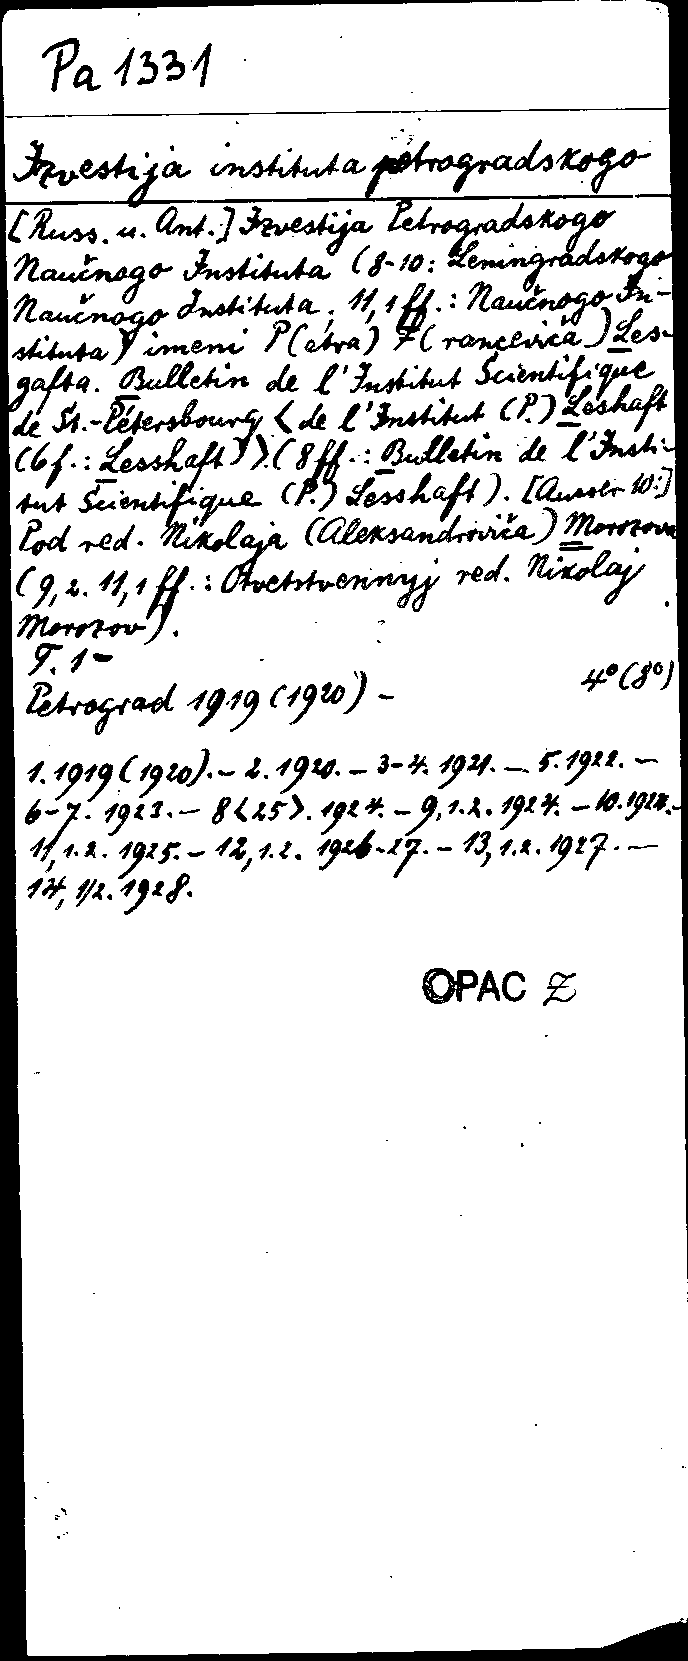 Pa 1331
Izvestija instituta petrogradskogo
[Russ. u. Ant.] Izvestija Petrogradskogo
Naučnogo Instituta (8-10: Leningradskogo
Naučnogo Instituta; 11,1 ff.: Naučnogo In-
stituta) imeni P(etra) F(ranceviča) Les-
gafta. Bulletin de l'Institut Scientifique
de St.-Pétersbourg <de l'Institut (P.) Leshaft
(6f.: Lesshaft)>. (8ff.: Bulletin de l'Insti-
tut Scientifique (P.) Lesshaft). [Ausser 10:]
Pod red. Nikolaja (Aleksandroviča) Morozova
(9,2. 11,1 ff.: Otvetstvennyj red. Nikolaj
Morozov).
T. 1-
Petrograd 1919 (1920) - 4° (8°)
1. 1919 (1920). - 2. 1920. - 3-4. 1921. - 5. 1922. -
6-7. 1923. - 8<25>. 1924. - 9,1.2. 1924. - 10. 1924. -
11,1.2. 1925. - 12,1.2. 1926-27. - 13,1.2. 1927. -
14,1/2. 1928.
OPAC Z